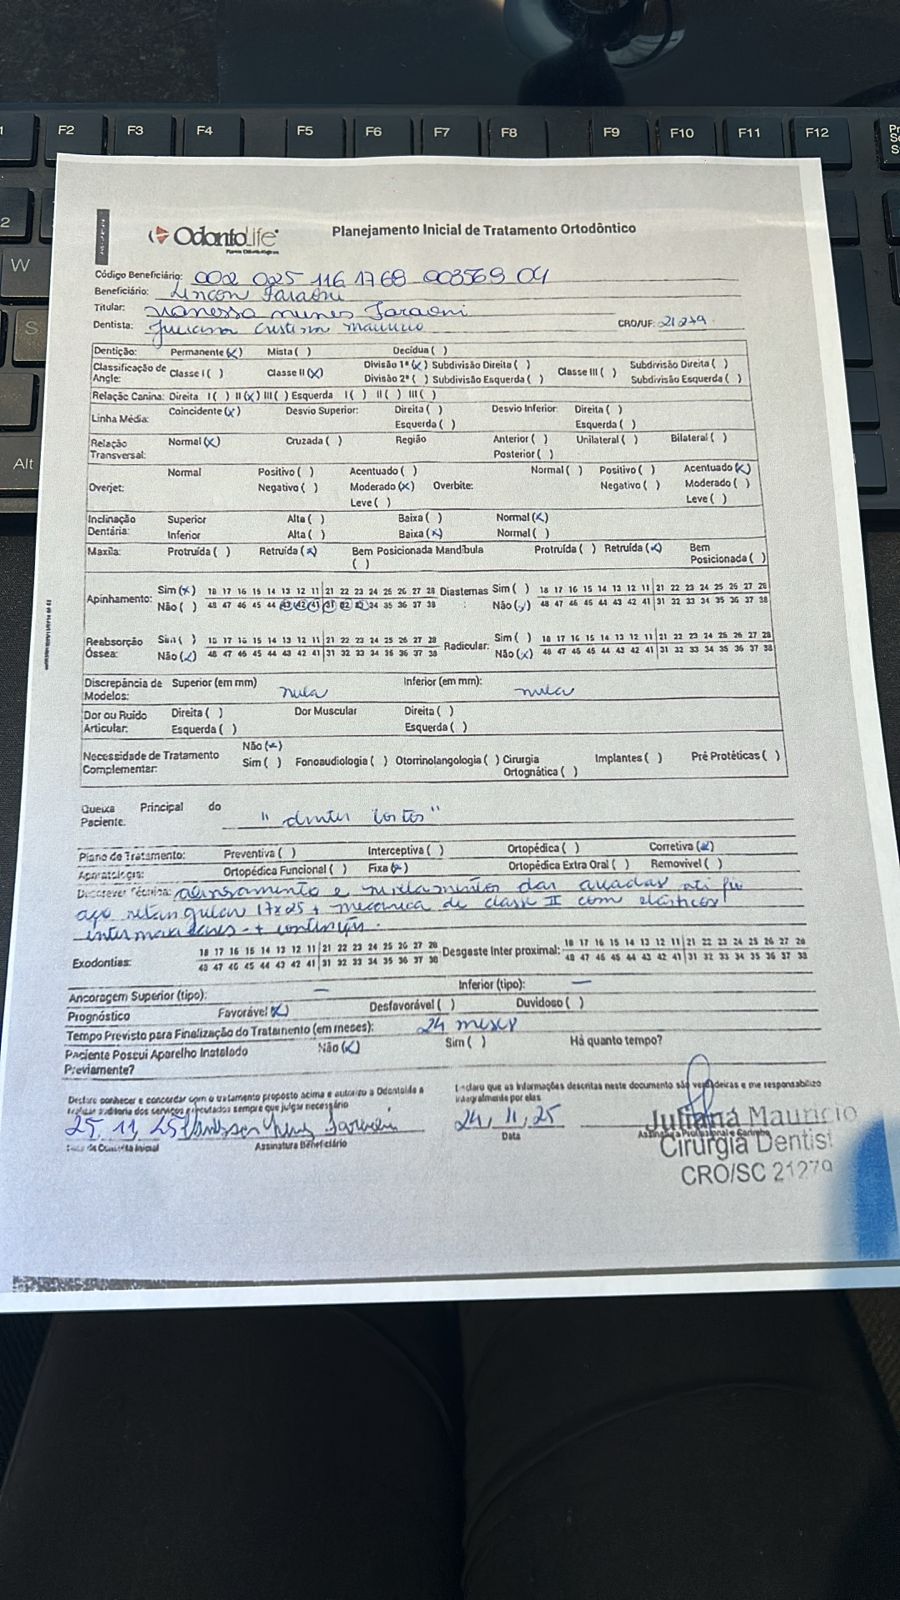 F2 F3 F4 F5 F6 F7 F8 F9 F10 F11 F12
W
S
Alt
OdontoLife
Planos Odontológicos
Planejamento Inicial de Tratamento Ortodôntico
Código Beneficiário: 002 025 116 1768 003569 04
Beneficiário: Lincon Faraoni
Titular: Vanessa Nunes Faraoni
Dentista: Juliana Cristina Mauricio CRO/UF: 21279
Dentição: Permanente (x) Mista ( ) Decídua ( )
Classificação de Angle: Classe I ( ) Classe II (x) Divisão 1ª (x) Subdivisão Direita ( ) Classe III ( ) Subdivisão Direita ( )
Divisão 2ª ( ) Subdivisão Esquerda ( ) Subdivisão Esquerda ( )
Relação Canina: Direita I ( ) II (x) III ( ) Esquerda I ( ) II ( ) III ( )
Linha Média: Coincidente (x) Desvio Superior: Direita ( ) Desvio Inferior: Direita ( )
Esquerda ( ) Esquerda ( )
Relação Transversal: Normal (x) Cruzada ( ) Região Anterior ( ) Unilateral ( ) Bilateral ( )
Posterior ( )
Overjet: Normal Positivo ( ) Acentuado ( ) Overbite: Normal ( ) Positivo ( ) Acentuado (x)
Negativo ( ) Moderado (x) Negativo ( ) Moderado ( )
Leve ( ) Leve ( )
Inclinação Dentária: Superior Alta ( ) Baixa ( ) Normal (x)
Inferior Alta ( ) Baixa (x) Normal ( )
Maxila: Protruída ( ) Retruída (x) Bem Posicionada ( ) Mandíbula Protruída ( ) Retruída (x) Bem Posicionada ( )
Apinhamento: Sim (x) 18 17 16 15 14 13 12 11 21 22 23 24 25 26 27 28 Diastemas: Sim ( ) 18 17 16 15 14 13 12 11 21 22 23 24 25 26 27 28
Não ( ) 48 47 46 45 44 43 42 41 31 32 33 34 35 36 37 38 Não (x) 48 47 46 45 44 43 42 41 31 32 33 34 35 36 37 38
Reabsorção Óssea: Sim ( ) 18 17 16 15 14 13 12 11 21 22 23 24 25 26 27 28 Radicular: Sim ( ) 18 17 16 15 14 13 12 11 21 22 23 24 25 26 27 28
Não (x) 48 47 46 45 44 43 42 41 31 32 33 34 35 36 37 38 Não (x) 48 47 46 45 44 43 42 41 31 32 33 34 35 36 37 38
Discrepância de Modelos: Superior (em mm) nula Inferior (em mm): nula
Dor ou Ruido Articular: Direita ( ) Dor Muscular Direita ( )
Esquerda ( ) Esquerda ( )
Necessidade de Tratamento Complementar: Não (x)
Sim ( ) Fonoaudiologia ( ) Otorrinolangologia ( ) Cirurgia Ortognática ( ) Implantes ( ) Pré Protéticas ( )
Queixa Principal do Paciente. "dentes tortos"
Plano de Tratamento: Preventiva ( ) Interceptiva ( ) Ortopédica ( ) Corretiva (x)
Aparatologia: Ortopédica Funcional ( ) Fixa (x) Ortopédica Extra Oral ( ) Removível ( )
Descrever Técnica: alinhamento e nivelamentos das arcadas até fio
aço retangular 17x25 + mecânica de classe II com elásticos
intermaxilares + contenção.
Exodontias: 18 17 16 15 14 13 12 11 21 22 23 24 25 26 27 28 Desgaste Inter proximal: 18 17 16 15 14 13 12 11 21 22 23 24 25 26 27 28
48 47 46 45 44 43 42 41 31 32 33 34 35 36 37 38 48 47 46 45 44 43 42 41 31 32 33 34 35 36 37 38
Ancoragem Superior (tipo): — Inferior (tipo): —
Prognóstico Favorável (x) Desfavorável ( ) Duvidoso ( )
Tempo Previsto para Finalização do Tratamento (em meses): 24 meses
Paciente Possui Aparelho Instalado Previamente? Não (x) Sim ( ) Há quanto tempo?
Declaro conhecer e concordar com o tratamento proposto acima e autorizo a Odontolife a
realizar auditoria dos serviços executados sempre que julgar necessário
Declaro que as informações descritas neste documento são verdadeiras e me responsabilizo
integralmente por elas
25, 11, 25 Vanessa Nunes Faraoni 24, 11, 25
Data da Consulta Inicial Assinatura Beneficiário Data Assinatura Profissional e Carimbo
Juliana Mauricio
Cirurgiã Dentist
CRO/SC 21279